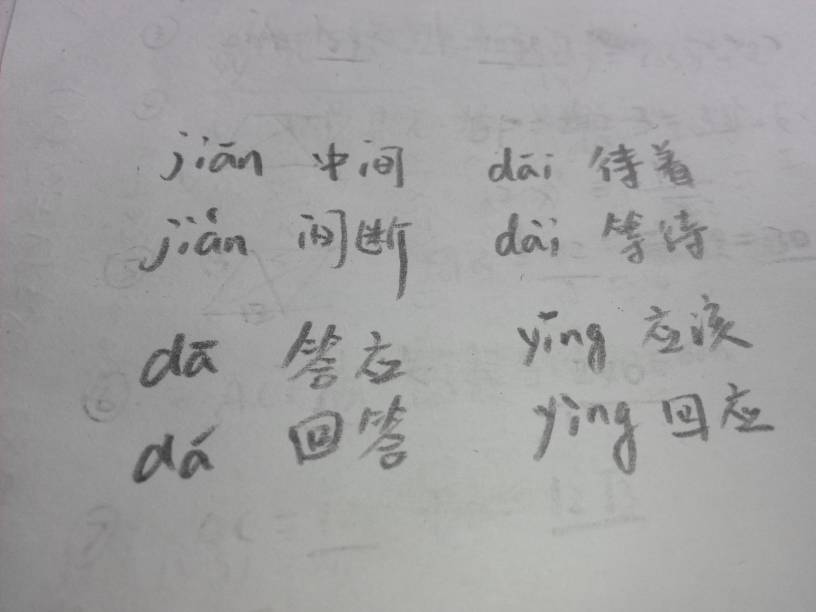 jiān 中间 dāi 待着
jiàn 间断 dài 等待
dā 答应 yīng 应该
dá 回答 yìng 回应